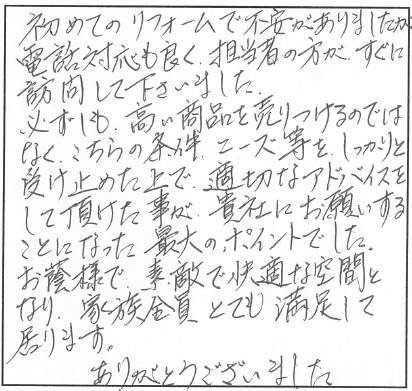 初めてのリフォームで不安がありましたが
電話対応も良く、担当者の方が、すぐに
訪問して下さいました。
必ずしも、高い商品を売りつけるのでは
なく、こちらの条件、ニーズ等を、しっかりと
受け止めた上で、適切なアドバイスを
して頂けた事が、貴社にお願いする
ことになった最大のポイントでした。
お蔭様で、素敵で快適な空間と
なり、家族全員とても満足して
居ります。
ありがとうございました